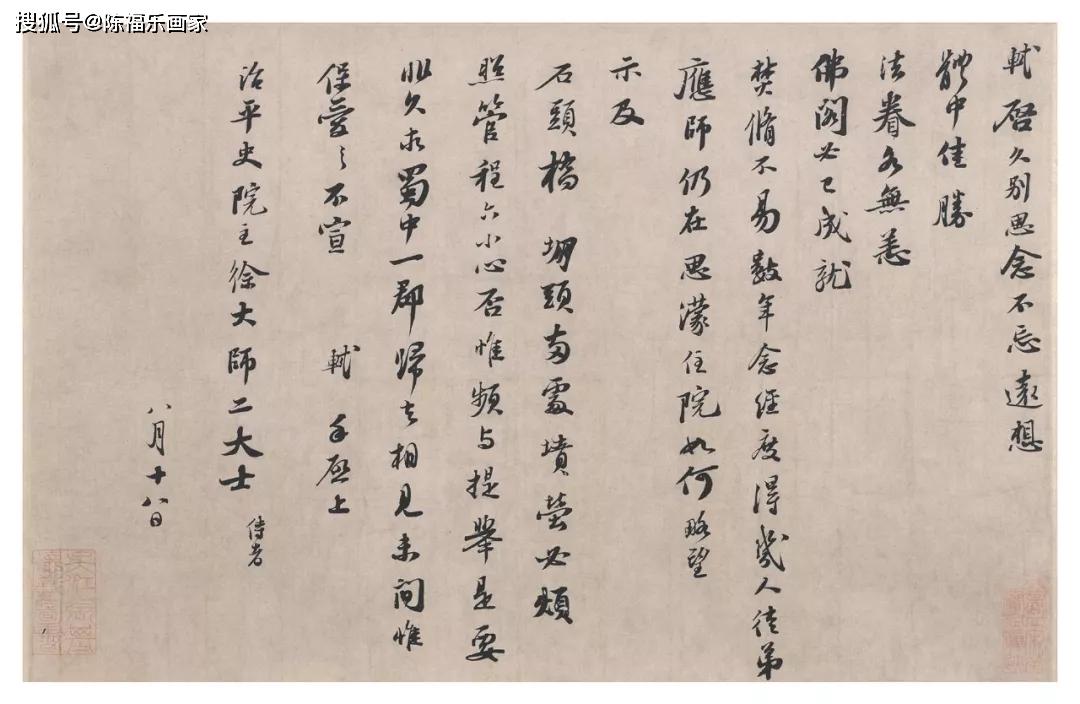 搜狐号@陈福乐画家
軾啓久別思念不忘遠想
體中佳勝
法眷各無恙
佛閣必已成就
焚脩不易數年念經度得幾人徒弟
應師仍在思濛住院如何略望
示及
石頭橋堋頭兩處墳塋必煩
照管程六小心否惟頻与提舉是要
非久求蜀中一郡歸去相見未間惟
保愛之不宣軾手啓上
治平史院主徐大師二大士侍者
八月十八日